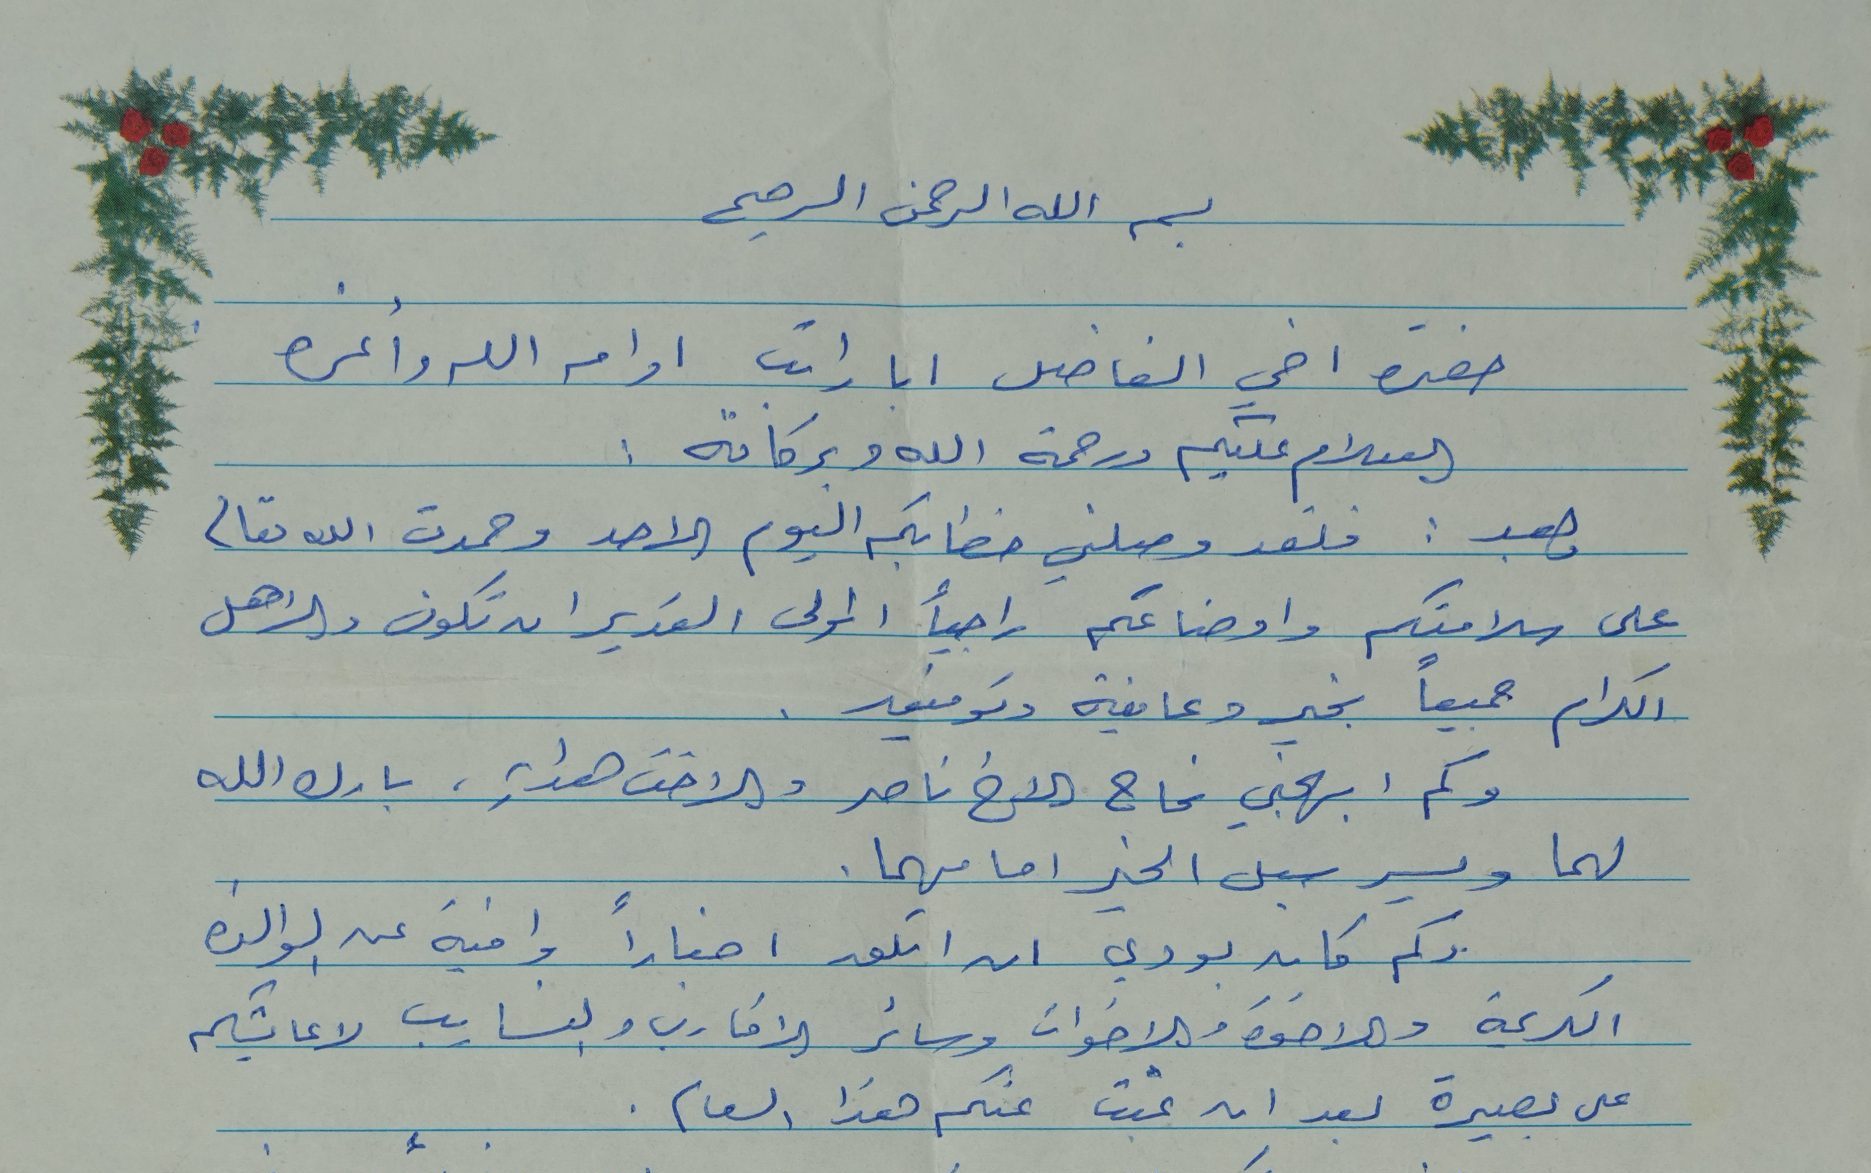 بسم الله الرحمن الرحيم
حضرة اخي الفاضل ابا رائب ادامه الله وأعزه
السلام عليكم ورحمة الله وبركاته :
وبعد : فلقد وصلني خطابكم اليوم الاحد وحمدت الله تعالى
على سلامتكم واوضاعكم راجياً المولى القدير ان تكون والاهل
الكرام جميعاً بخير وعافية وتوفيق .
وكم ابهجني نجاح الاخ ناصر والاخت هداية ، بارك الله
لهما ويسر سبل الخير امامهما .
وكم كان بودي ان اتلقى اخباراً وافية عن الوالدة
الكريمة والاخوة والاخوات وسائر الاقارب والنسايب لاعايشكم
على بصيرة بعد ان غبت عنكم هذا العام .